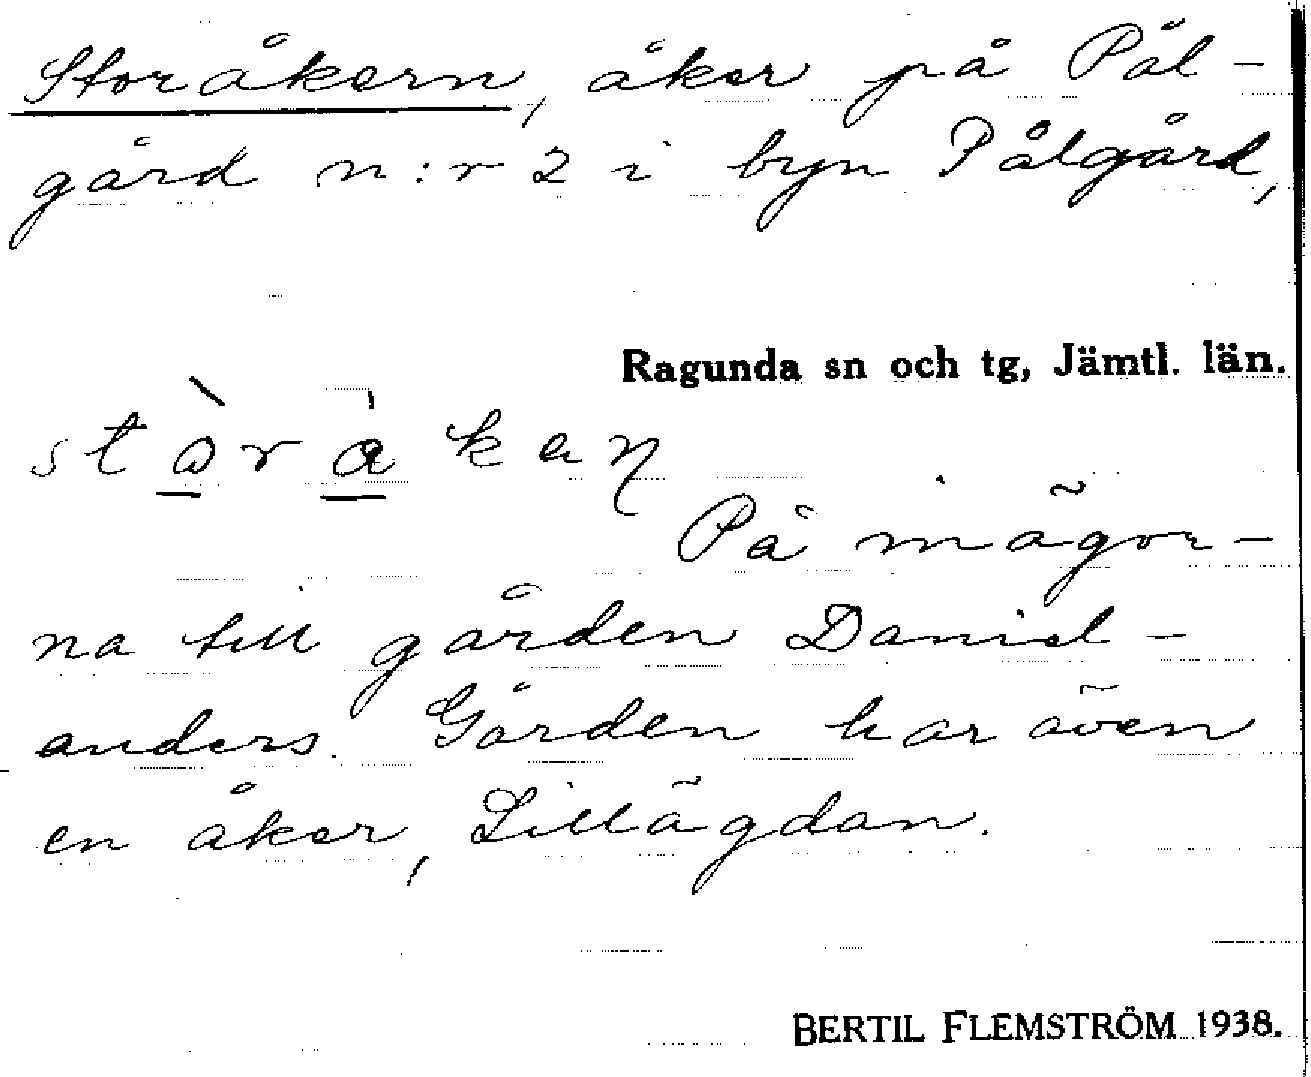 Storåkern, åker på Pål-
gård n:r 2 i byn Pålgård,
Ragunda sn och tg, Jämtl. län.
På mägor-
na till gården Daniel-
anders. Gården har även
en åker, Lillägdan.
BERTIL FLEMSTRÖM 1938.